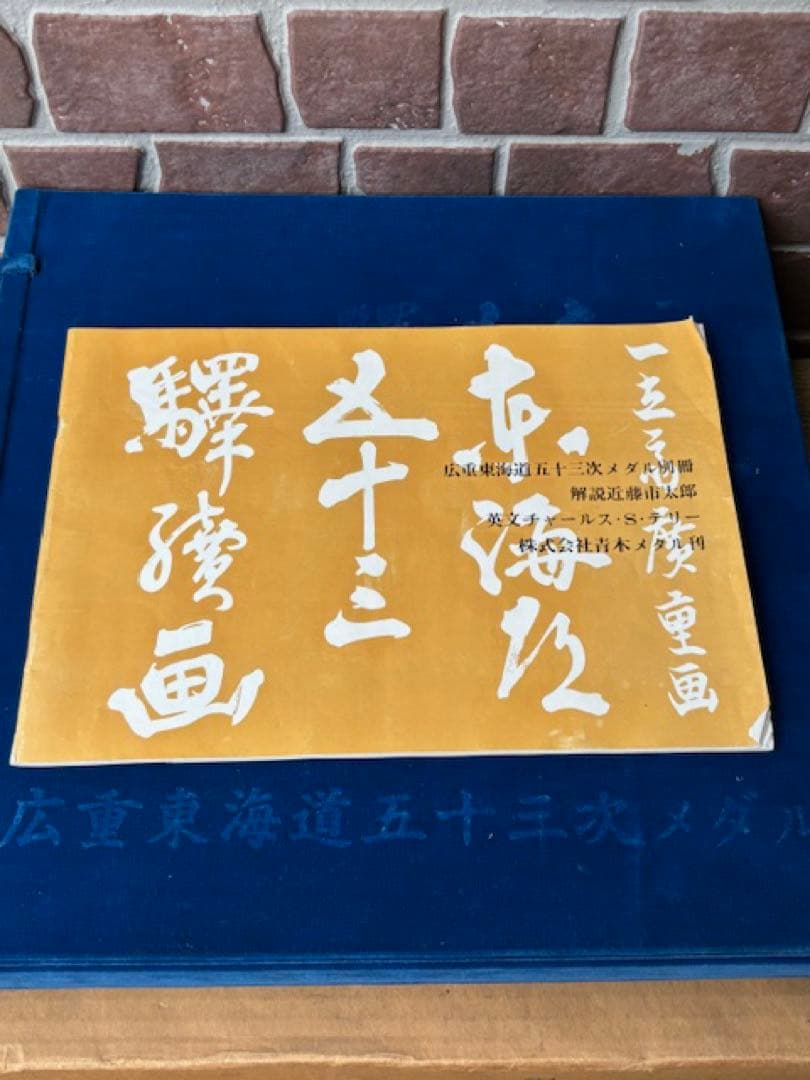 一立斎廣重画
東海道
五十三
驛續画
広重東海道五十三次メダル別冊
解説近藤市太郎
英文チャールス・S・テリー
株式会社青木メダル刊
広重東海道五十三次メダル